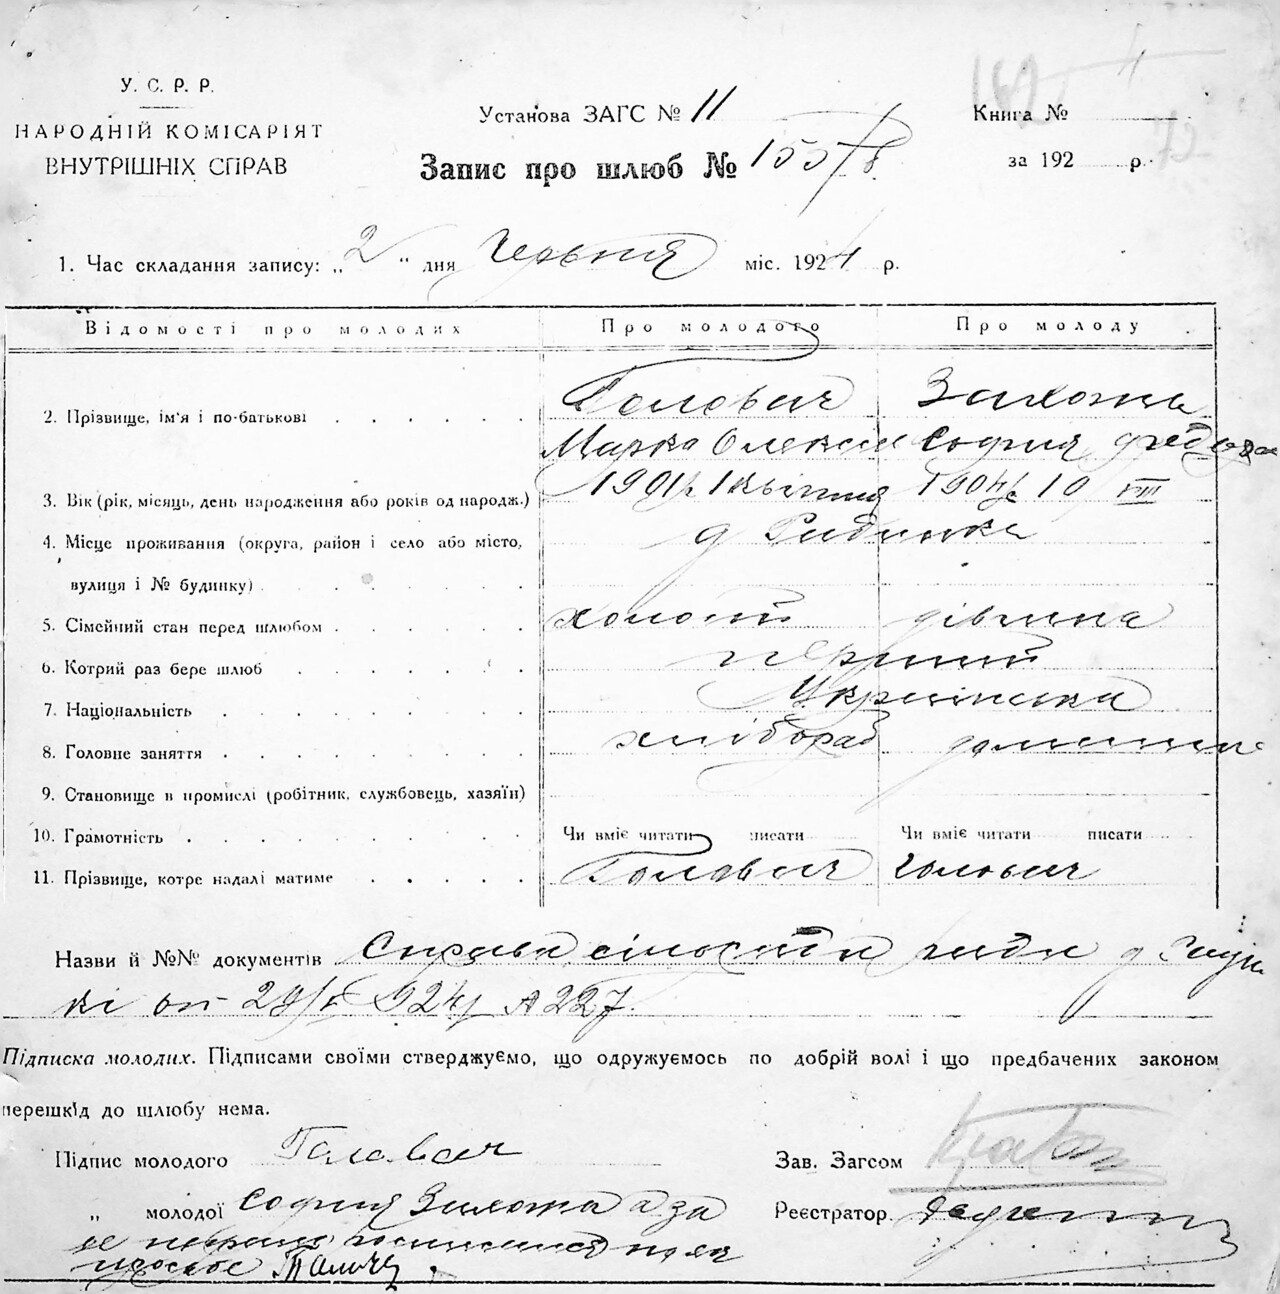 У. С. Р. Р.
НАРОДНІЙ КОМІСАРІЯТ
ВНУТРІШНІХ СПРАВ
Установа ЗАГС № 11
Запис про шлюб № 155
Книга №
за 192 р.
162
72
1. Час складання запису: „2“ дня Червня міс. 1924 р.
Відомості про молодих Про молодого Про молоду
2. Прізвище, ім'я і по-батькові Головач
Марко Олексів София
3. Вік (рік, місяць, день народження або років од народж.) 1901 р. 1 квітня 1904 р. 10 VIII
4. Місце проживання (округа, район і село або місто, д
вулиця і № будинку)
5. Сімейний стан перед шлюбом холостий дівчина
6. Котрий раз бере шлюб перший
7. Національність Українська
8. Головне заняття хлібороб домашнє
9. Становище в промислі (робітник, службовець, хазяїн)
10. Грамотність Чи вміє читати писати Чи вміє читати писати
11. Прізвище, котре надалі матиме Головач Головач
Назви й №№ документів Справка сільської ради д.
кі от 29/V 1924 227.
Підписка молодих. Підписами своїми стверджуємо, що одружуємось по добрій волі і що предбачених законом
перешкід до шлюбу нема.
Підпис молодого Головач
Зав. Загсом
„ молодої София а за
Реєстратор
не